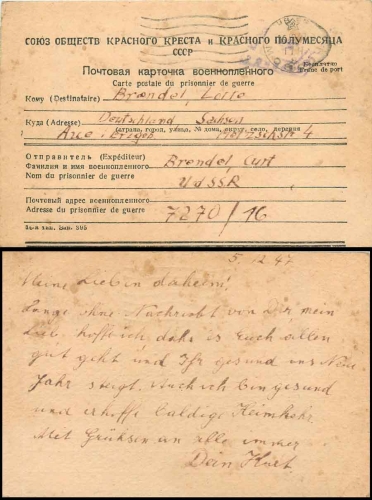 СОЮЗ ОБЩЕСТВ КРАСНОГО КРЕСТА и КРАСНОГО ПОЛУМЕСЯЦА
СССР
Почтовая карточка военнопленного
Бесплатно
Carte postale du prisonnier de guerre
Franc de port
Кому (Destinataire) Brendel, Lotte
Куда (Adresse) Deutschland, Sachsen
(страна, город, улица, № дома, округ, село, деревня)
Aue i. Erzgeb. 4
Отправитель (Expéditeur) Brendel Curt
Фамилия и имя военнопленного
Nom du prisonnier de guerre UdSSR
Почтовый адрес военнопленного
Adresse du prisonnier de guerre 7270/16
5.12.47
Meine Lieben daheim!
Lange ohne Nachricht von Dir mein
Lieb. hoffe ich, daß es Euch allen
gut geht und Ihr gesund ins Neue
Jahr steigt. Auch ich bin gesund
und erhoffe baldige Heimkehr.
Mit Grüßen an alle immer
Dein Kurt